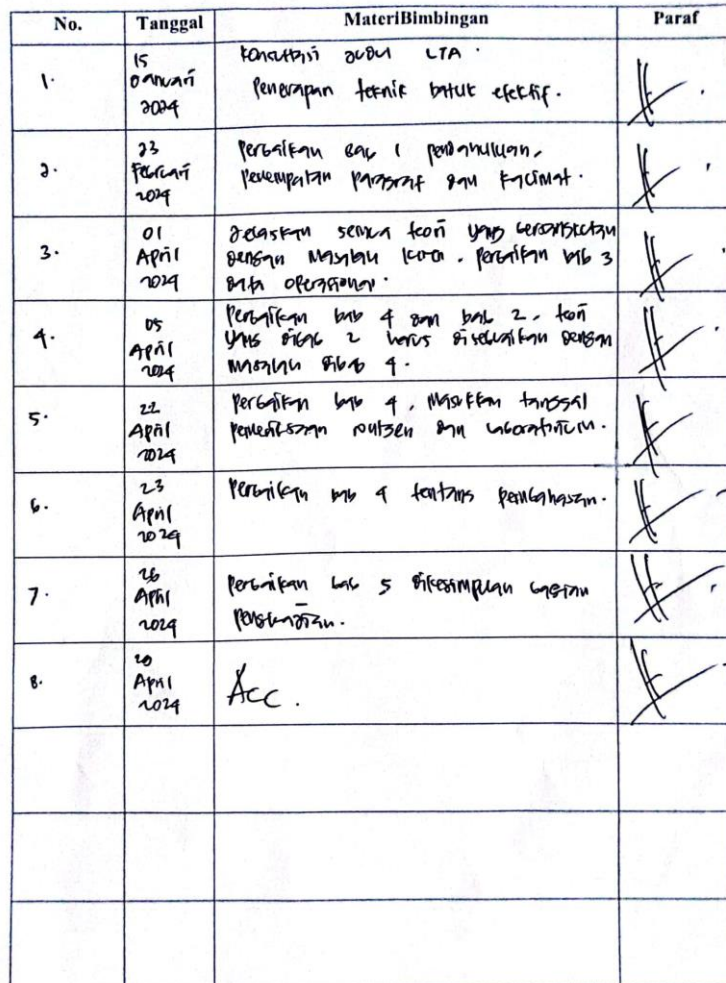 No. Tanggal MateriBimbingan Paraf
1. 15 Januari 2024
Konsultasi Judul LTA.
Penerapan teknik batuk efektif.
2. 23 Februari 2024
Perbaikan Bab 1 pendahuluan,
penempatan paragraf dan kalimat.
3. 01 April 2024
Jelaskan semua teori yang bersangkutan
dengan masalah . perbaikan bab 3
data operasional.
4. 05 April 2024
Perbaikan bab 4 dan bab 2, teori
yang dibab 2 harus disesuaikan dengan
masalah dibab 4.
5. 22 April 2024
Perbaikan bab 4, masukkan tanggal
pemeriksaan rontsen dan laboratorium.
6. 23 April 2024
Perbaikan bab 4 tentang pembahasan.
7. 26 April 2024
Perbaikan bab 5 dikesimpulan bagian
pengkajian.
8. April 2024
Acc.